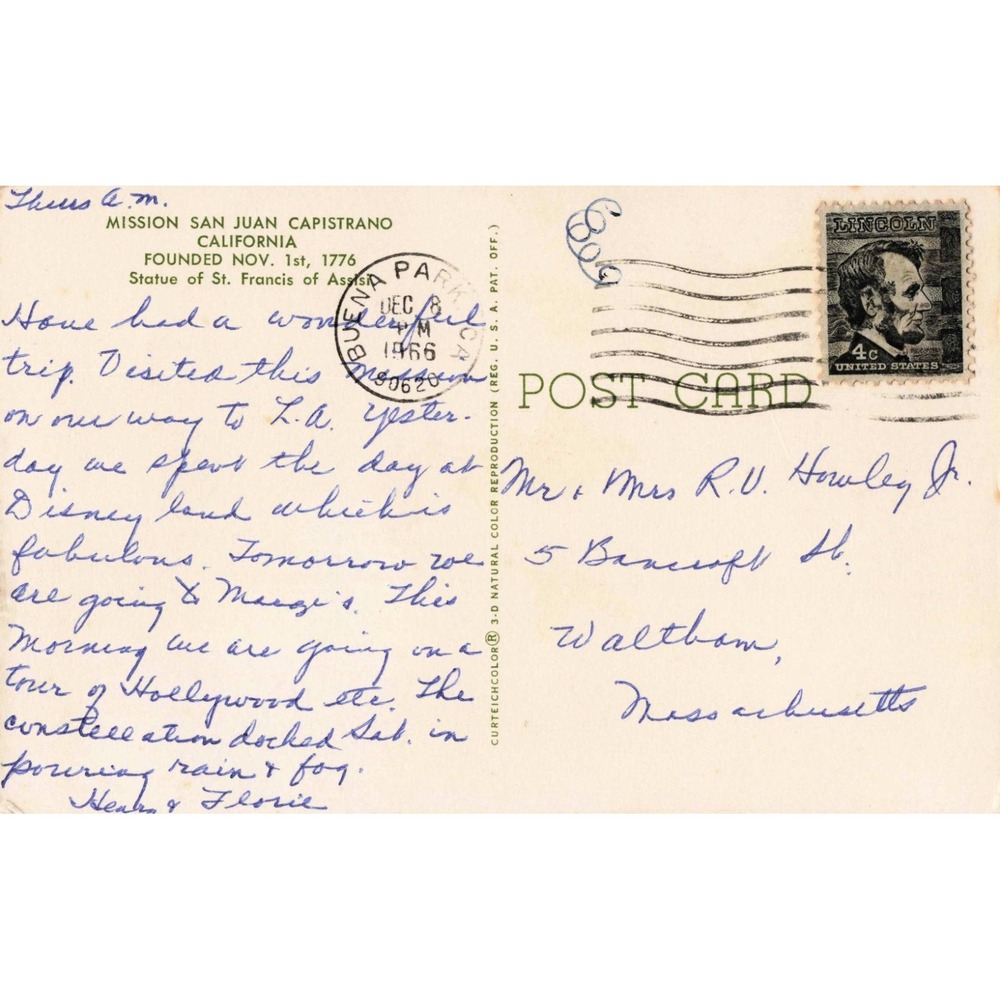 Thurs a.m.
MISSION SAN JUAN CAPISTRANO
CALIFORNIA
FOUNDED NOV. 1st, 1776
Statue of St. Francis of Assisi
Have had a wonderful
trip. Visited this Mission
on our way to L.A. Yester-
day we spent the day at
Disney land which is
fabulous. Tomorrow we
are going to Marge's. This
Morning we are going on a
tour of Hollywood etc. The
constellation docked Sat. in
pouring rain & fog.
Henry & Florie
BUENA PARK, CA
DEC 8
PM
1966
90620
CURTEICHCOLOR® 3-D NATURAL COLOR REPRODUCTION (REG. U. S. A. PAT. OFF.)
LINCOLN
4c
UNITED STATES
POST CARD
Mr & Mrs R.V. Howley Jr.
5 Bancroft St.
Waltham,
Massachusetts